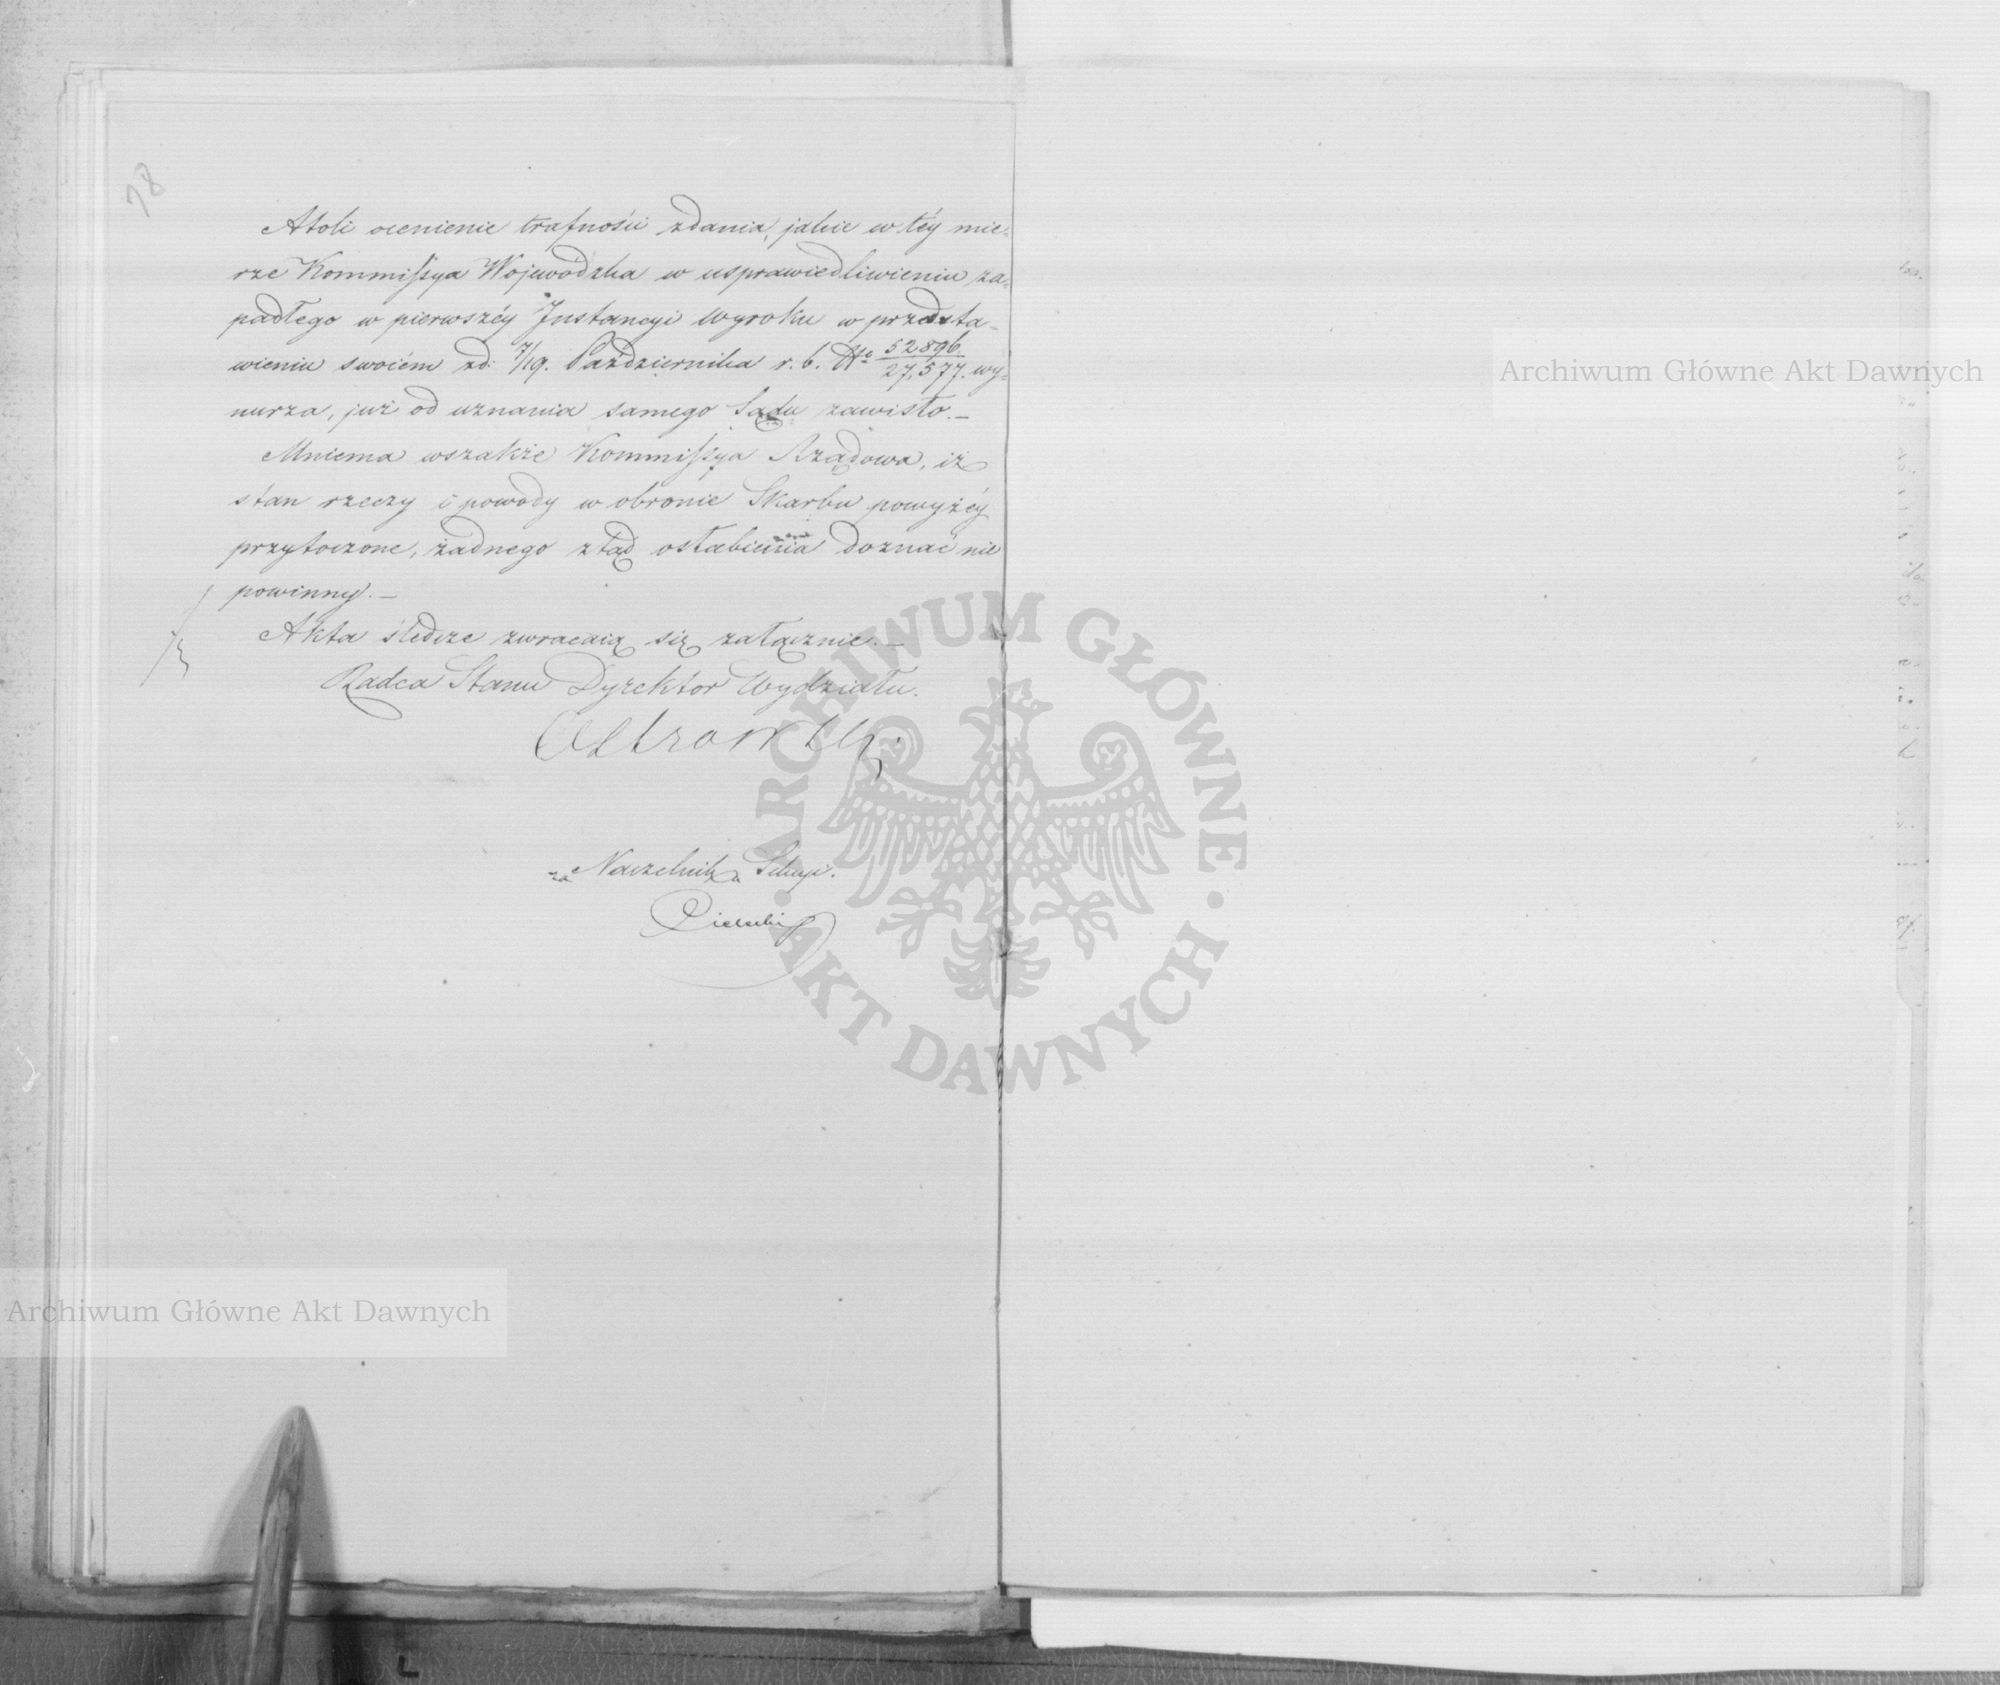 78
Atoli ocenienie trafności zdania, jakie w téy mie-
rze Kommissya Wojewódzka w usprawiedliwieniu za-
padłego w pierwszéy Instancyi wyroku w przedsta-
wieniu swoiém zd: 7/19. Października r. b. No 52896/27,577. wy-
nurza, już od uznania samego Sądu zawisło.-
Mniema wszakże Kommissya Rządowa, iż
stan rzeczy i powody w obronie Skarbu powyżéy
przytoczone, żadnego ztąd osłabienia doznać nie
powinny.-
Akta śledcze zwracaią się załącznie.-
Radca Stanu Dyrektor Wydziału.
za Naczelnika Sekcyi.
Archiwum Główne Akt Dawnych
Archiwum Główne Akt Dawnych
ARCHIWUM GŁÓWNE
AKT DAWNYCH